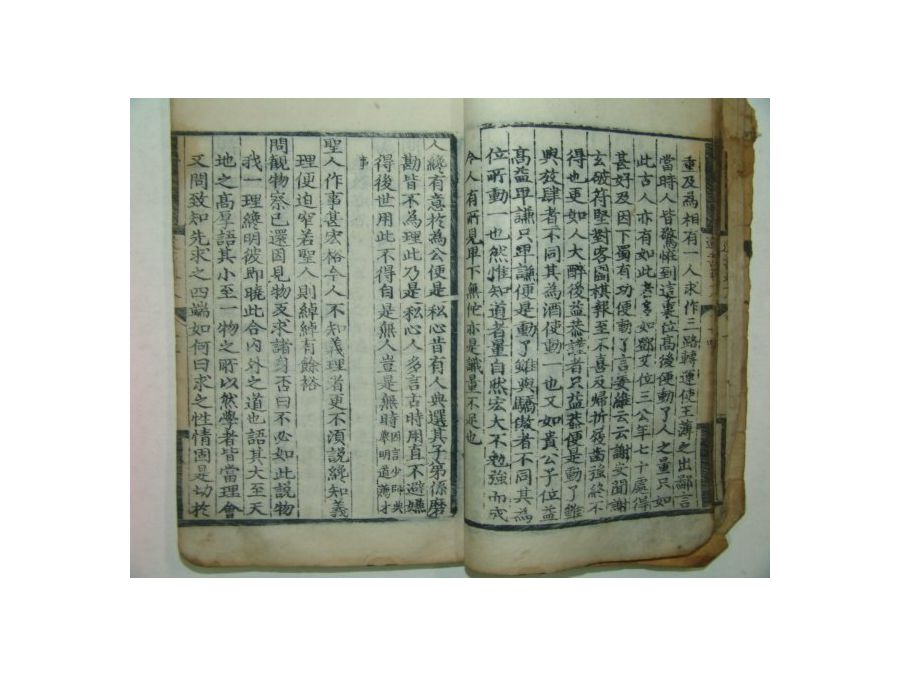 重及為相有一人求作三路轉運使王薄之出鄙言
當時人皆驚怪到這裏位高後便動了人之量只如
此古人亦有如此者多如鄧艾位三公年七十處得
甚好及因下蜀有功便動了言姜維云云謝安聞謝
玄破符堅對客圍棋報至不喜及歸折屐齒強終不
得也更如人大醉後益恭謹者只益恭便是動了雖
與放肆者不同其為酒使動一也又如貴公子位益
高益卑謙只卑謙便是動了雖與驕傲者不同其為
位所動一也然惟知道者量自然宏大不勉強而成
今人有所見卑下無他亦是識量不足也
人纔有意於為公便是私心昔有人典選其子弟係磨
勘皆不為理此乃是私心人多言古時用直不避嫌
得後世用此不得自是無人豈是無時因言少師典
舉明道薦才
事
聖人作事甚宏裕今人不知義理者更不須說纔知義
理便迫窄若聖人則綽綽有餘裕
問觀物察己還因見物反求諸身否曰不必如此說物
我一理纔明彼即曉此合內外之道也語其大至天
地之高厚語其小至一物之所以然學者皆當理會
又問致知先求之四端如何曰求之性情固是切於